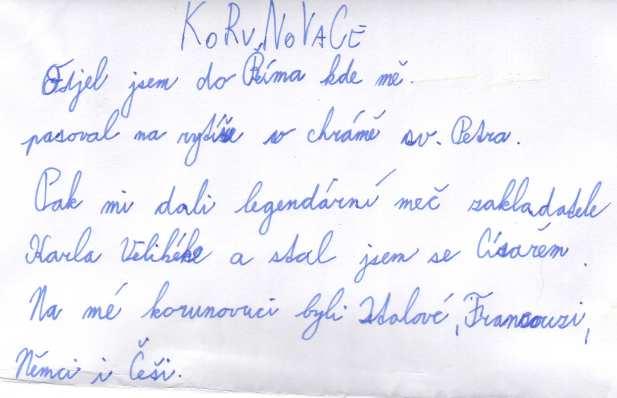 KORUNOVACE
Odjel jsem do Říma kde mě.
pasoval na rytíře v chrámě sv. Petra.
Pak mi dali legendární meč zakladatele
Karla Velikého a stal jsem se Císařém.
Na mé korunovaci byli Italové, Francouzi,
Němci i Češi.